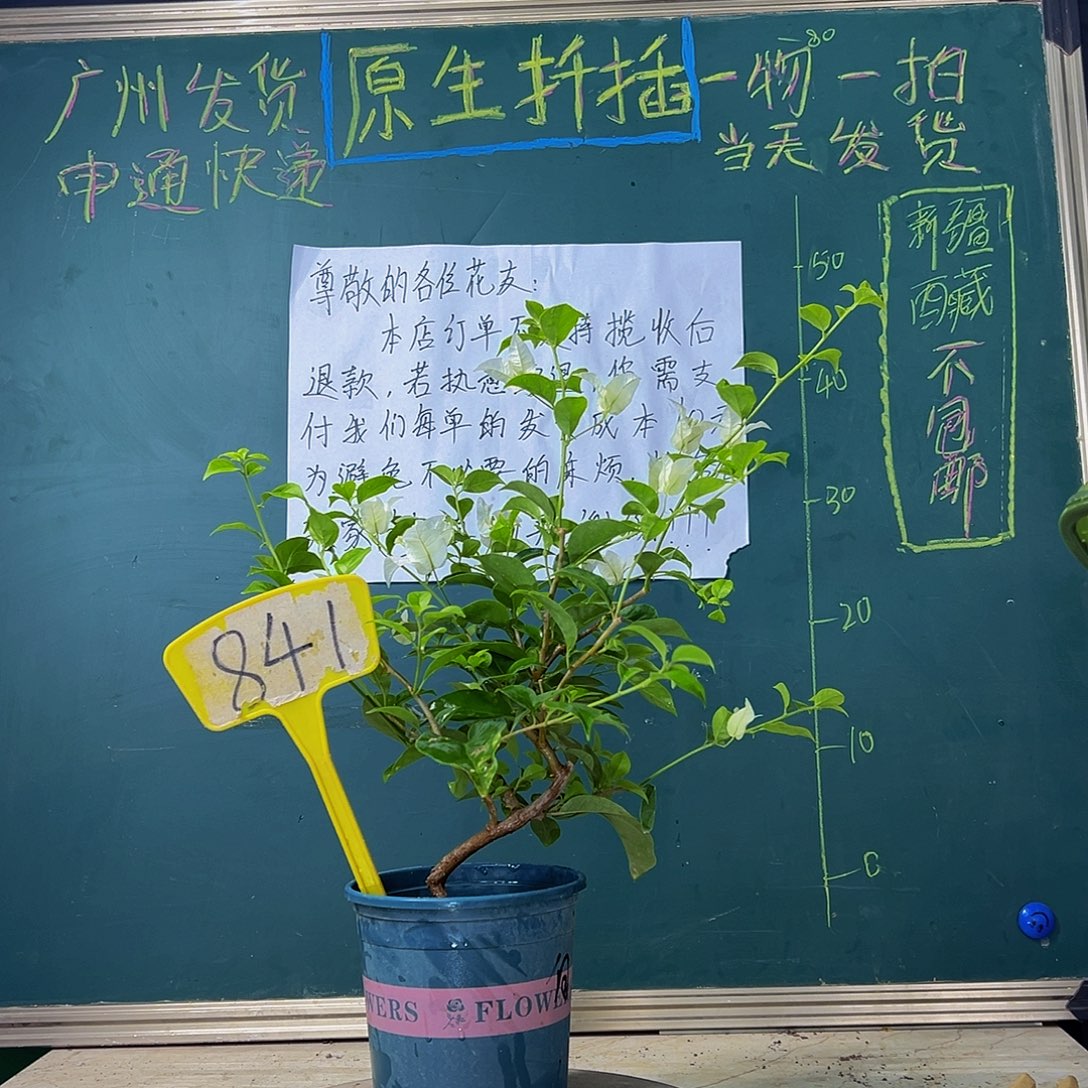 广州发货
申通快递
原生扦插
一物一拍
80
当天发货
新疆
西藏
不
包
邮
尊敬的各位花友:
本店订单不 持揽收后
退款,若执意 退 你需支
付我们每单的发 成本
为避免不必要的麻烦
家
!!!
50
40
30
20
10
0
841
WERS FLOW